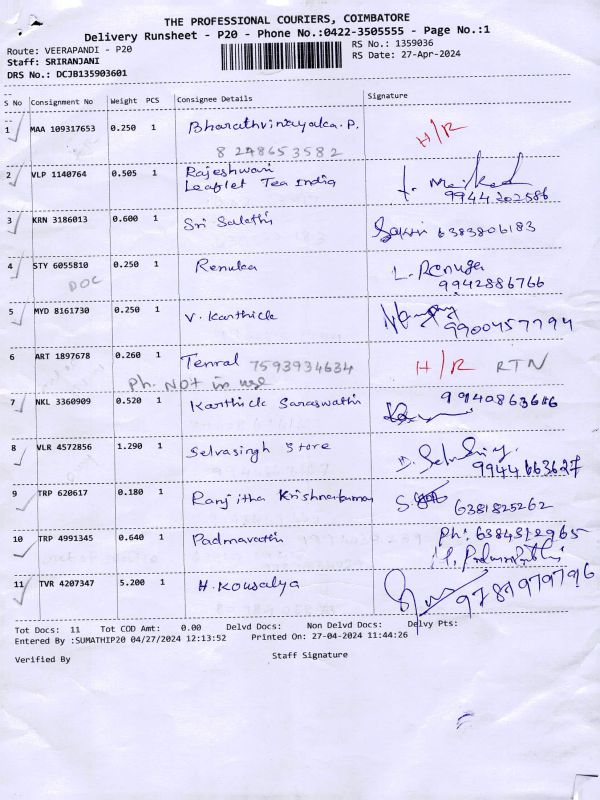 THE PROFESSIONAL COURIERS, COIMBATORE
Delivery Runsheet - P20 - Phone No.:0422-3505555 - Page No.:1
Route: VEERAPANDI - P20
RS No.: 1359036
Staff: SRIRANJANI
RS Date: 27-Apr-2024
DRS No.: DCJB135903601
S No Consignment No Weight PCS Consignee Details Signature
1 MAA 109317653 0.250 1 Bharathvinayaka.P. H/R
8248653582
2 VLP 1140764 0.505 1 Rajeshwari
Leaflet Tea India
9944202586
3 KRN 3186013 0.600 1 Sri Sakthi Sakthi 6383806183
4 STY 6055810 0.250 1 Renuka L. Renuga
DOC 9942886766
5 MYD 8161730 0.250 1 V. Karthick 9900457794
6 ART 1897678 0.260 1 Tenral 7593934634 H/R RTN
Ph. NOT in use
7 NKL 3360909 0.520 1 Karthick Saraswathi 9940863616
8 VLR 4572856 1.290 1 Selvasingh Store
9944663627
9 TRP 620617 0.180 1 Ranjitha Krishnakumar 6381825262
10 TRP 4991345 0.640 1 Padmavathi Ph: 6384312965
11 TVR 4207347 5.200 1 H. Kousalya 9789797996
Tot Docs: 11 Tot COD Amt: 0.00 Delvd Docs: Non Delvd Docs: Delvy Pts:
Entered By :SUMATHIP20 04/27/2024 12:13:52 Printed On: 27-04-2024 11:44:26
Verified By Staff Signature